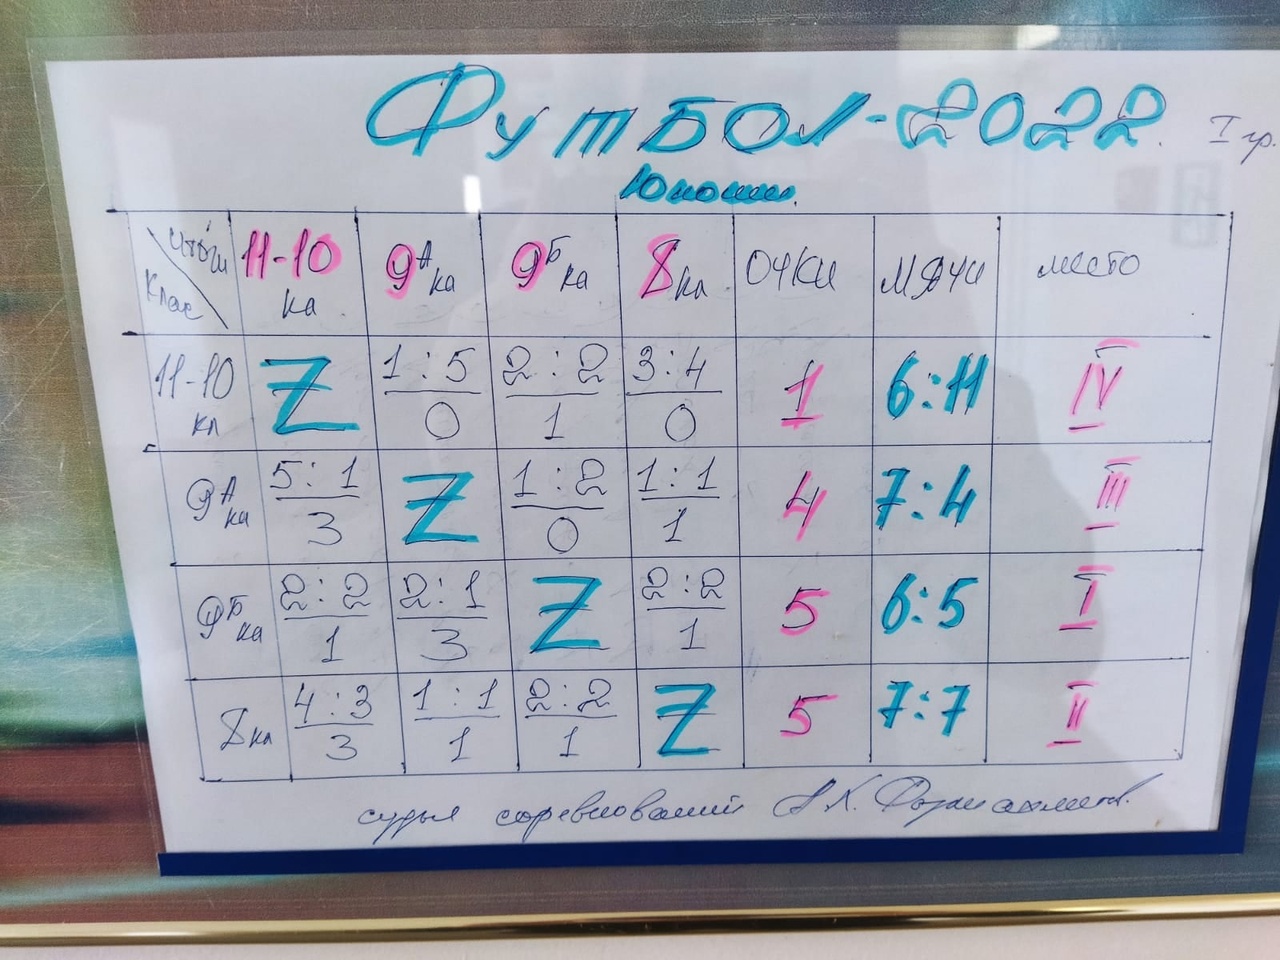 Футбол-2022. I гр.
Юноши.
Итоги Клас 11-10 кл 9А кл 9Б кл 8 кл очки мячи место
11-10 кл Z 1:5 0 2:2 1 3:4 0 1 6:11 IV
9А кл 5:1 3 Z 1:2 0 1:1 1 4 7:4 III
9Б кл 2:2 1 2:1 3 Z 2:2 1 5 6:5 I
8 кл 4:3 3 1:1 1 2:2 1 Z 5 7:7 II
судья соревнований